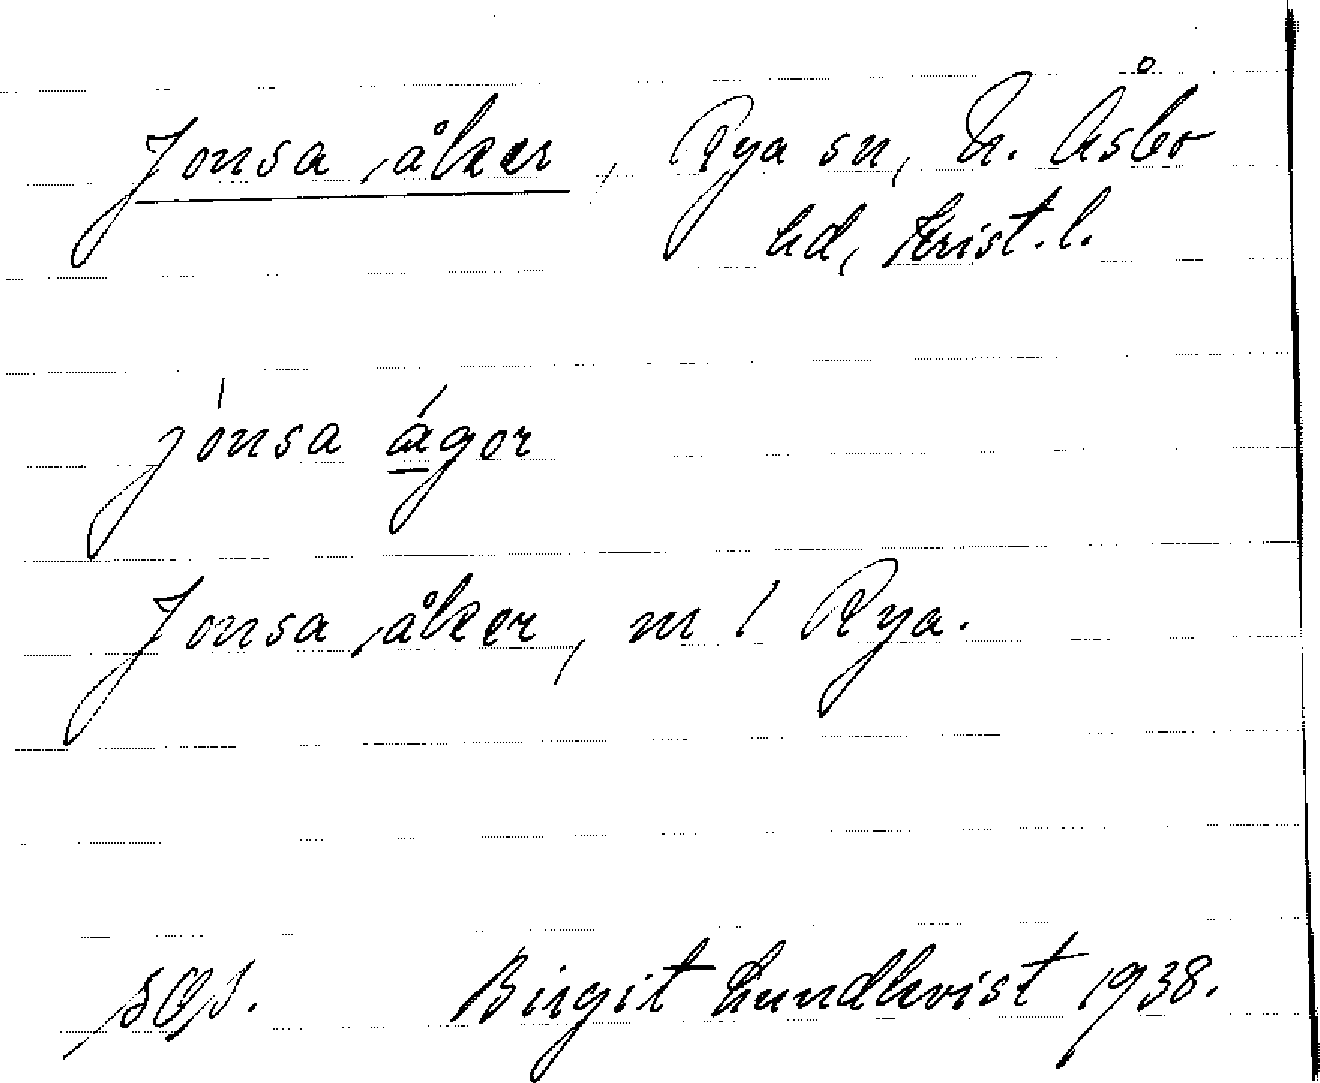 Jonsa åker, Rya sn, N. Åsbo
hd, Krist. l.
jónsa ágor
Jonsa åker, m 1 Rya.
Birgit Lundkvist 1938.